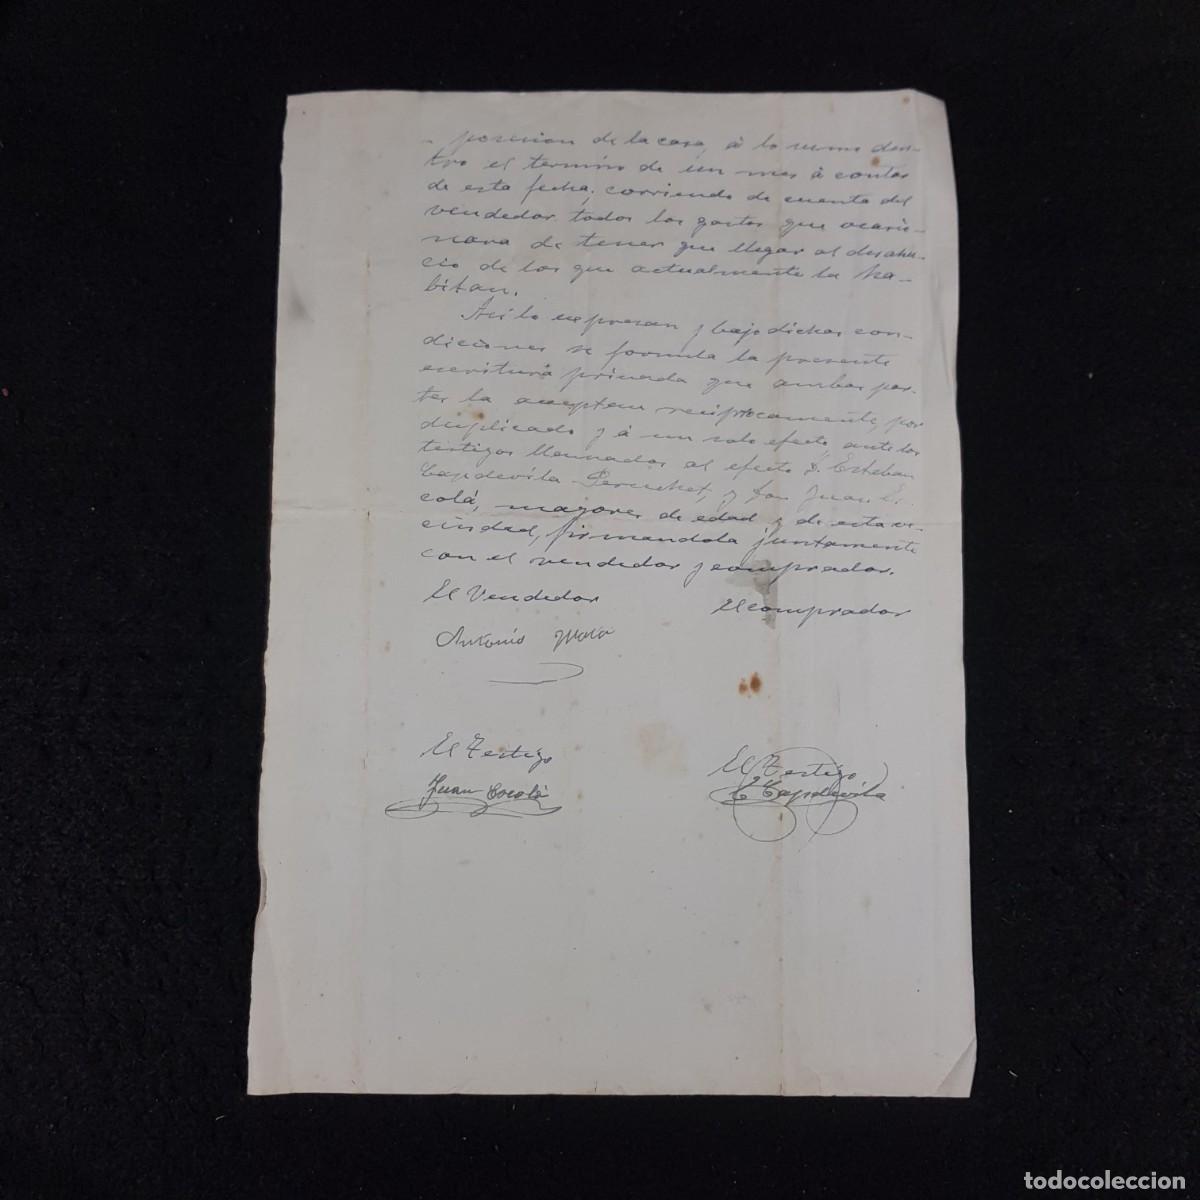 posesion de la casa, á lo sumo den-
tro el termino de un mes á contar
de esta fecha; corriendo de cuenta del
vendedor todos los gastos que ocasio-
nara de tener que llegar al desahu-
cio de los que actualmente la ha-
bitan.
Asi lo expresan y bajo dichas con-
diciones se formula la presente
escritura privada que ambas par-
tes la aceptan reciprocamente, por
duplicado y á un solo efecto ante los
testigos llamados al efecto D. Esteban
Capdevila y Don Juan Es-
colá, mayores de edad y de esta ve-
cindad, firmandola juntamente
con el vendedor y comprador.
El Vendedor El comprador
Antonio
El Testigo El Testigo
Juan Escolá E Capdevila
todocoleccion